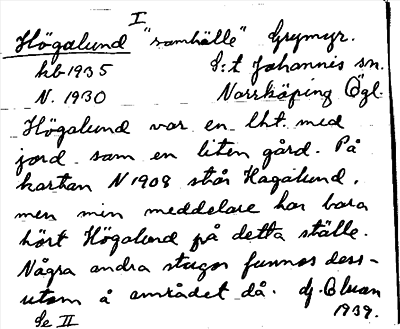 I
Högalund "samhälle" Grymyr.
hb 1935 S:t Johannis sn.
N. 1930 Norrköping Ögl.
Högalund var en lht. med
jord som en liten gård. På
kartan N 1908 står Hagalund,
men min meddelare har bara
hört Högalund på detta ställe.
Några andra stugor funnos dess-
utom å området då.
1939.
Se II